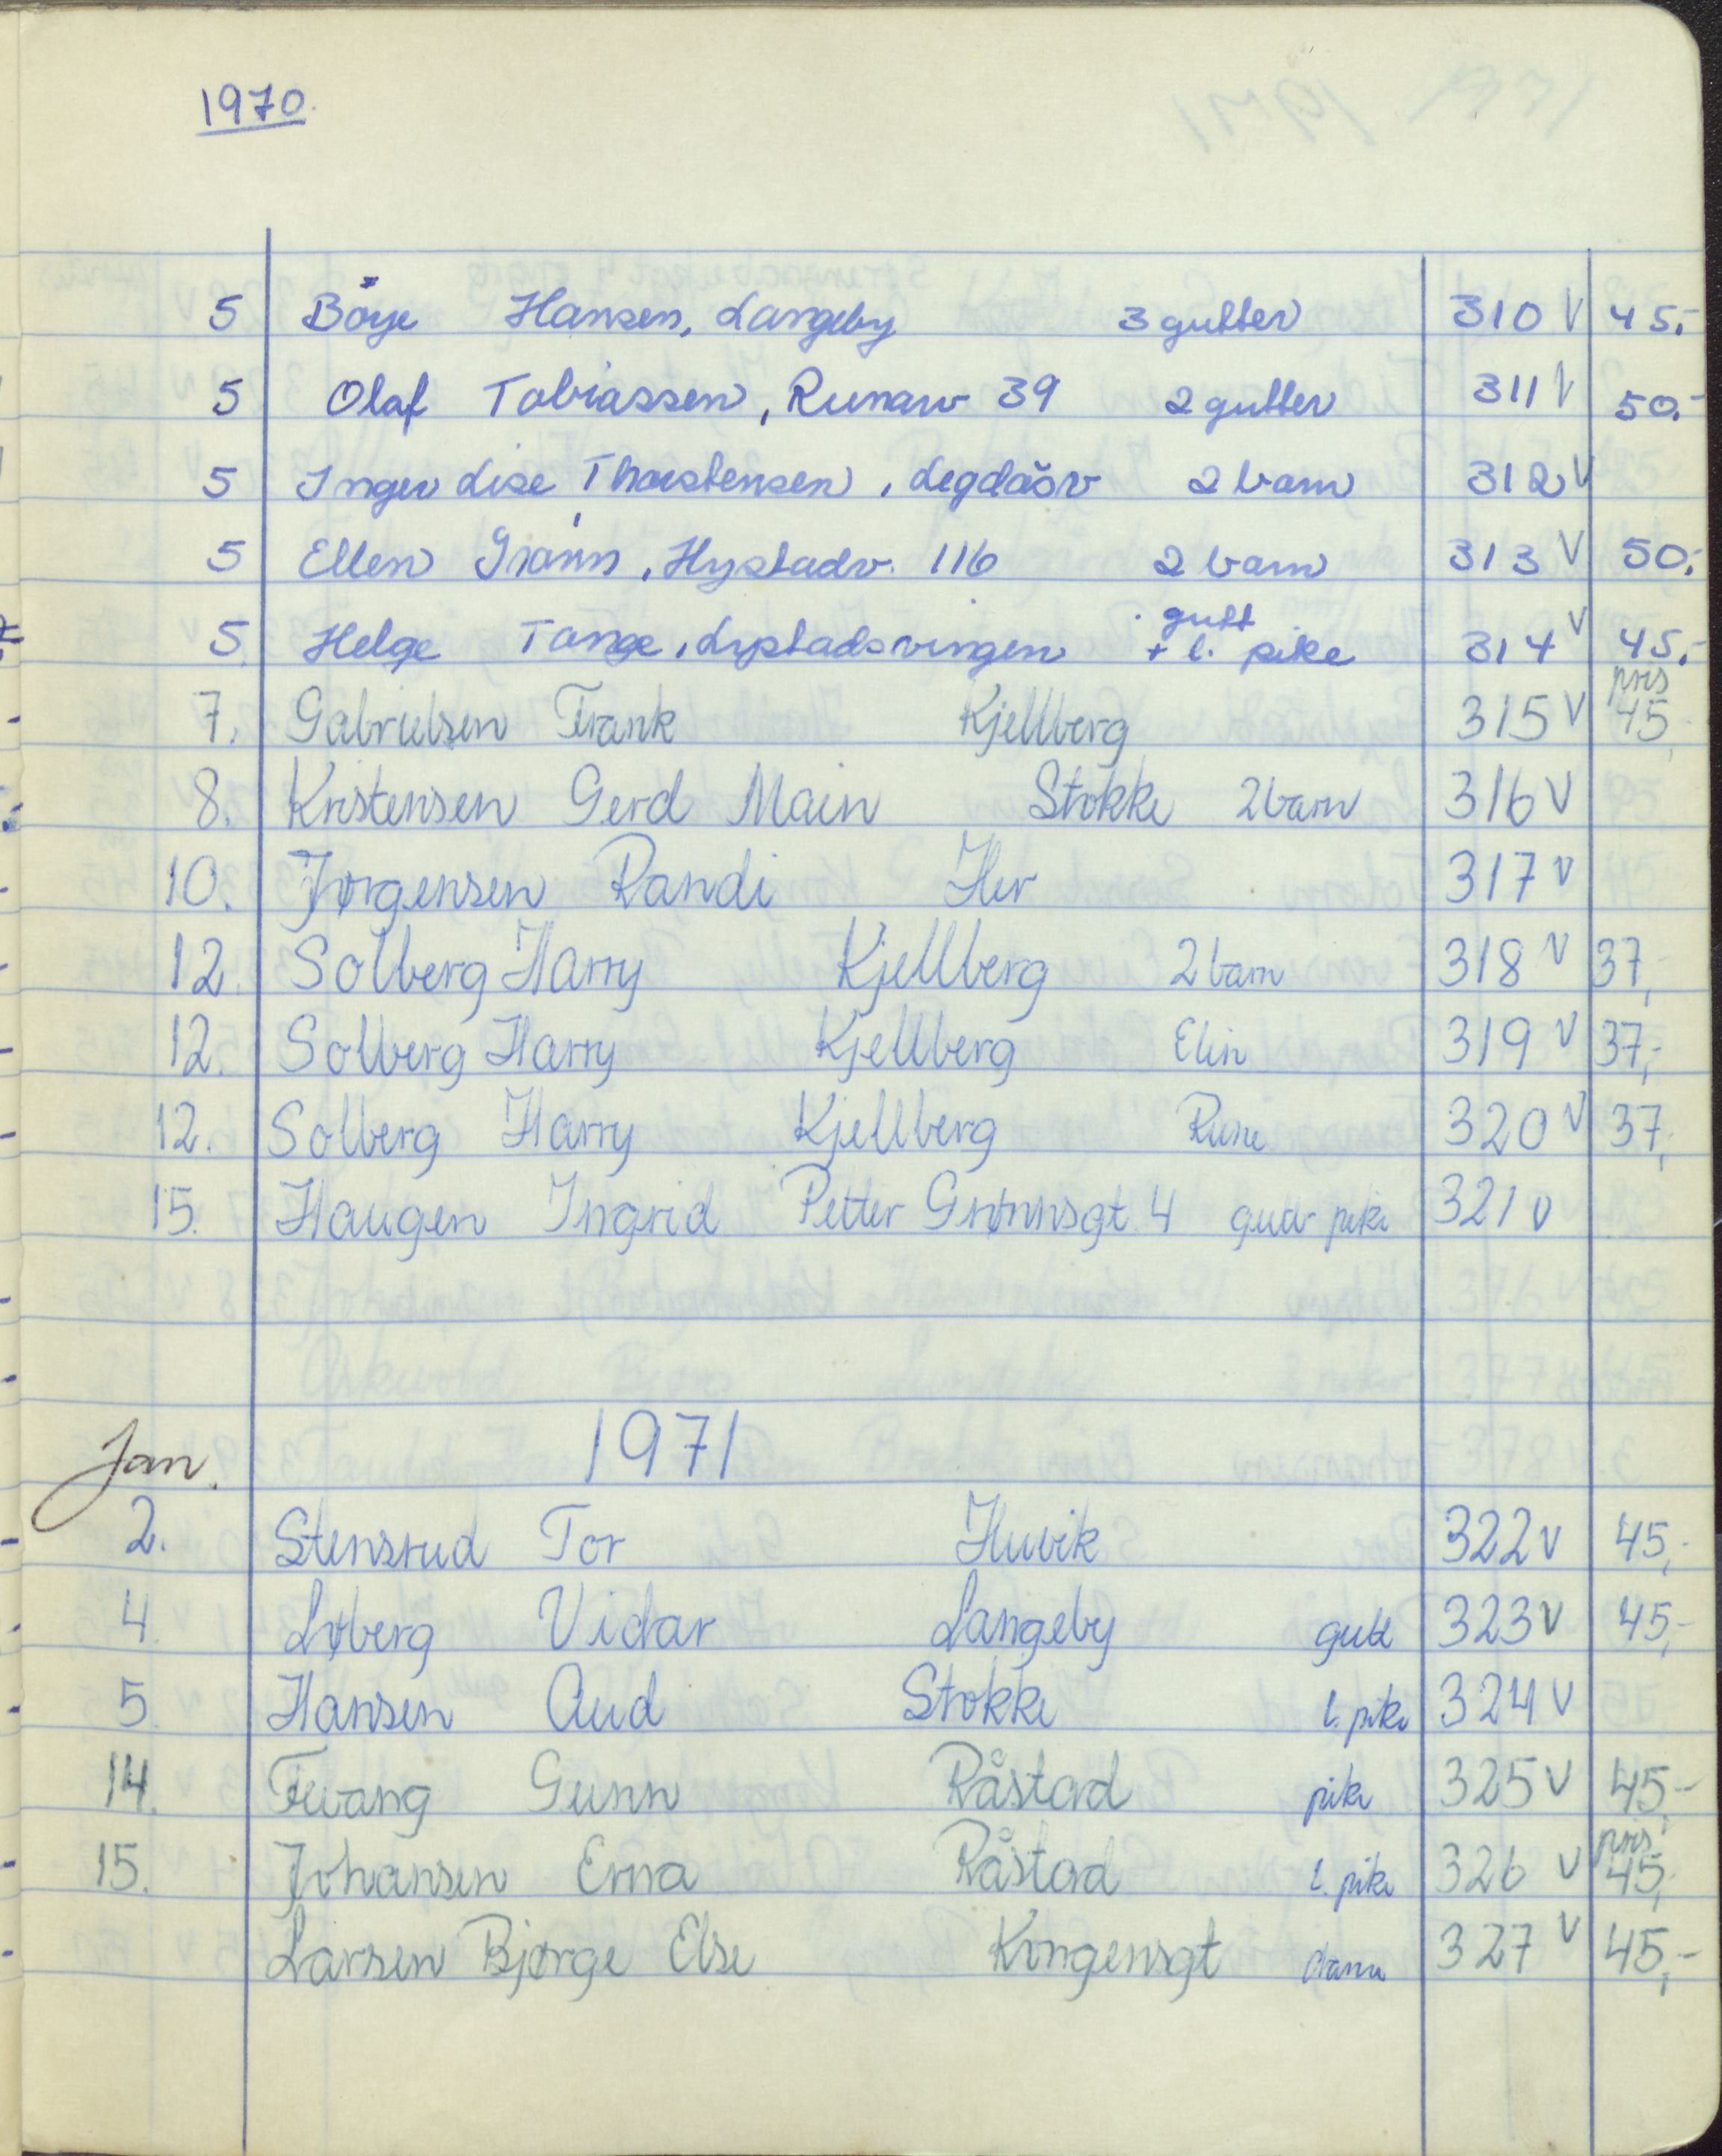 1970.
5 Böye Hansen, Langeby 3 gutter 310 V 45.-
5 Olaf Tobiassen, Runarv 39 2 gutter 311 V 50.-
5 Inger Lise Thorstensen, Legdåsv 2 barn 312 V
5 Ellen Grann, Hystadv. 116 2 barn 313 V 50.-
5 Helge Tange, Lystadsvingen gutt + l. pike 314 V 45.-
7. Gabrielsen Frank Kjellberg 315 V pris 45,
8. Kristensen Gerd Main Stokke 2 barn 316 V
10. Jørgensen Randi Her 317 V
12. Solberg Harry Kjellberg 2 barn 318 V 37,-
12. Solberg Harry Kjellberg Elin 319 V 37,-
12. Solberg Harry Kjellberg Rune 320 V 37,
15. Haugen Ingrid Petter Grønnsgt 4 pike 321 V
Jan. 1971
2. Stensrud Tor Huvik 322 V 45,-
4 Løberg Vidar Langeby gutt 323 V 45,-
5 Hansen Aud Stokke l. pike 324 V
14. Gunn Råstad pike 325 V 45,-
15. Johansen Erna Råstad l. pike 326 V pris 45,-
Larsen Bjørge Else Kongensgt 327 V 45,-